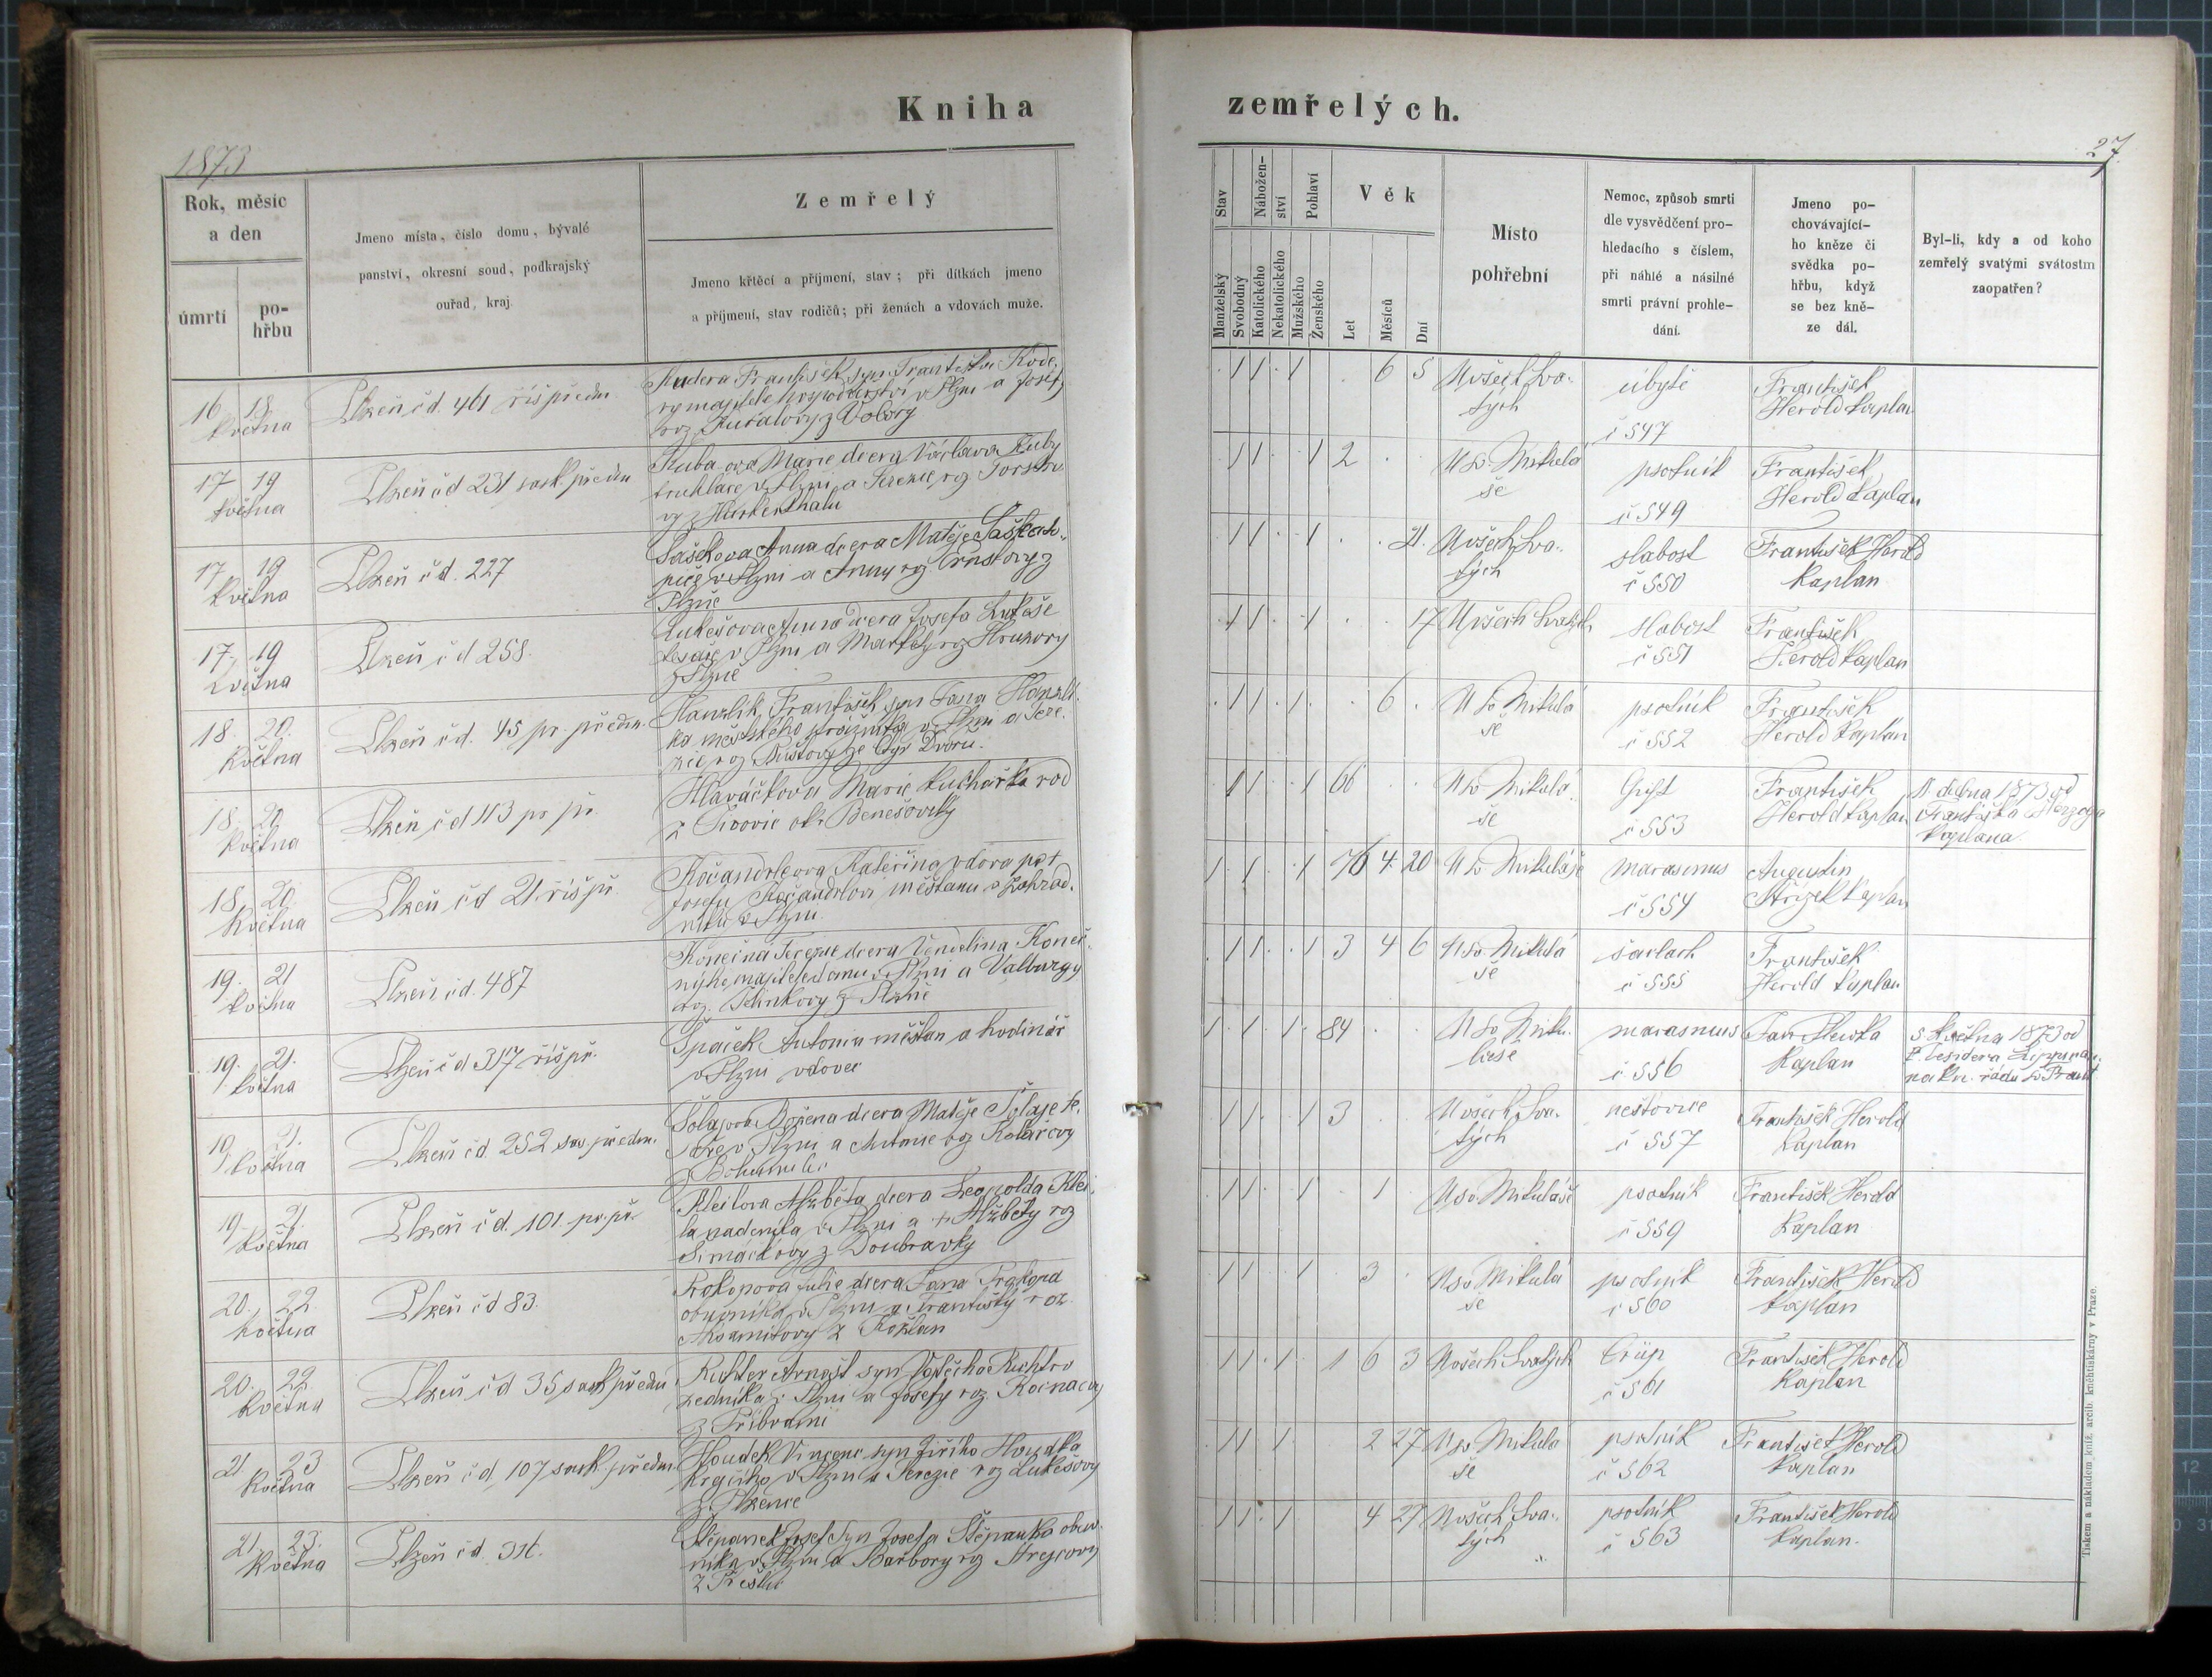 Kniha
zemřelých.
1873
27
Rok, měsíc
a den
úmrtí
po-
hřbu
Jmeno místa, číslo domu, bývalé
panství, okresní soud, podkrajský
ouřad, kraj.
Zemřelý
Jmeno křtěcí a příjmení, stav; při dítkách jmeno
a příjmení, stav rodičů; při ženách a vdovách muže.
Stav
Nábožen-
ství
Pohlaví
Věk
Manželský
Svobodný
Katolického
Nekatolického
Mužského
Ženského
Let
Měsíců
Dní
Místo
pohřební
Nemoc, způsob smrti
dle vysvědčení pro-
hledacího s číslem,
při náhlé a násilné
smrti právní prohle-
dání.
Jmeno po-
chovávající-
ho kněze či
svědka po-
hřbu, když
se bez kně-
ze dál.
Byl-li, kdy a od koho
zemřelý svatými svátostmi
zaopatřen?
16 18
května
Plzeň čd. 461 říš předm.
Kudera František, syn Františka Kude-
ry majitele hospodářství v Plzni a Josefy
roz. z Vobory
1 1 1 6 5
U všech Sva-
tých
úbytě
č 547
František
Herold kaplan
17 19
května
Plzeň čd 231 sask. předm
Kuba ova Marie dcera Václava Kuby
truhláře v Plzni a Terezie roz.
vy z Hurkenthalu
1 1 1 2
U sv. Mikulá
še
psotník
č 549
František
Herold kaplan
17 19
května
Plzeň čd. 227
Saškova Anna dcera Matěje Saška
v Plzni a Anny roz. z
Plzně
1 1 1 21.
U všech Sva-
tých
slabost
č 550
František Herold
kaplan
17. 19
května
Plzeň čd 258.
Lukešova Anna dcera Josefa Lukeše
tesaře v Plzni a Markéty roz. Hruzovy
z Plzně
1 1 1 17
U všech Svatých
slabost
č 551
František
Herold kaplan
18. 20.
května
Plzeň čd. 45 pr. předm.
Hanzlík František syn Jana Hanzlí-
ka městského strážníka v Plzni a Tere-
zie roz. ze Dvorů.
1 1 1 6
U sv Mikulá
še
psotník
č 552
František
Herold kaplan
18. 20
května
Plzeň čd 113 pr př.
Hlaváčkova Marie kuchařka rod
z okr. Benešovský
1 1 1 66
U sv. Mikulá
še
č 553
František
Herold kaplan
11. dubna 1873 od
Františka Herzoga
kaplana
18. 20
května
Plzeň čd 21. říš př
Kočandrleova Kateřina vdova po †
Josefu Kočandrlovi měštanu a zahrad-
níku v Plzni
1 1 1 76 4 20
U sv. Mikuláše
marasmus
č 554
Augustin
kaplan
19. 21
května
Plzeň čd. 487
Konečná Terezie dcera Vendelina Koneč-
nýho majitele domu v Plzni a Valburgy
roz. z Plzně
1 1 1 3 4 6
U sv. Mikulá
še
šarlach
č 555
František
Herold kaplan
19. 21.
května
Plzeň čd 317 říš př.
Špaček Antonín měštan a hodinář
v Plzni vdovec
1 1 1 84
U sv. Miku-
láše
marasmus
č 556
Jan Hlevka
kaplan
5 května 1873 od
19 21.
května
Plzeň čd. 252 sas. předm.
Božena dcera Matěje
v Plzni a Antonie roz. Kolářovy
z
1 1 1 3
U všech Sva-
tých
neštovice
č 557
František Herold
kaplan
19 21.
května
Plzeň čd. 101. pr. př.
Kleilova Alžběta dcera Leopolda Klei-
la nadeníka v Plzni a † Alžběty roz
z Doubravky
1 1 1 1
U sv. Mikuláše
psotník
č 559
František Herold
kaplan
20. 22.
května
Plzeň čd 83.
Prokopova Julie dcera Jana Prokopa
obuvníka v Plzni a Františky roz.
Aksamitovy z Kožlan
1 1 1 3
U sv Mikulá
še
psotník
č 560
František Herold
kaplan
20. 22.
května
Plzeň čd 35 sask předm
Richter Arnošt syn Vojtěcha Richtra
zedníka v Plzni a Josefy roz.
z Příbrami
1 1 1 1 6 3
U všech Svatých
Crüp
č 561
František Herold
kaplan
21 23
května
Plzeň čd. 107 sask. předm.
Houdek Vincenc syn Jiřího Houdka
krejčího v Plzni a Terezie roz Lukešovy
z Plzence
1 1 1 2 27
U sv Mikulá
še
psotník
č 562
František Herold
kaplan
21. 23.
května
Plzeň čd. 316.
Štěpanek Josef syn Josefa Štěpanka obuv-
níka v Plzni a Barbory roz
z Přeštic
1 1 1 4 27
U všech Sva-
tých
psotník
č 563
František Herold
kaplan.
Tiskem a nákladem kníž. arcib. kněhtiskárny v Praze.